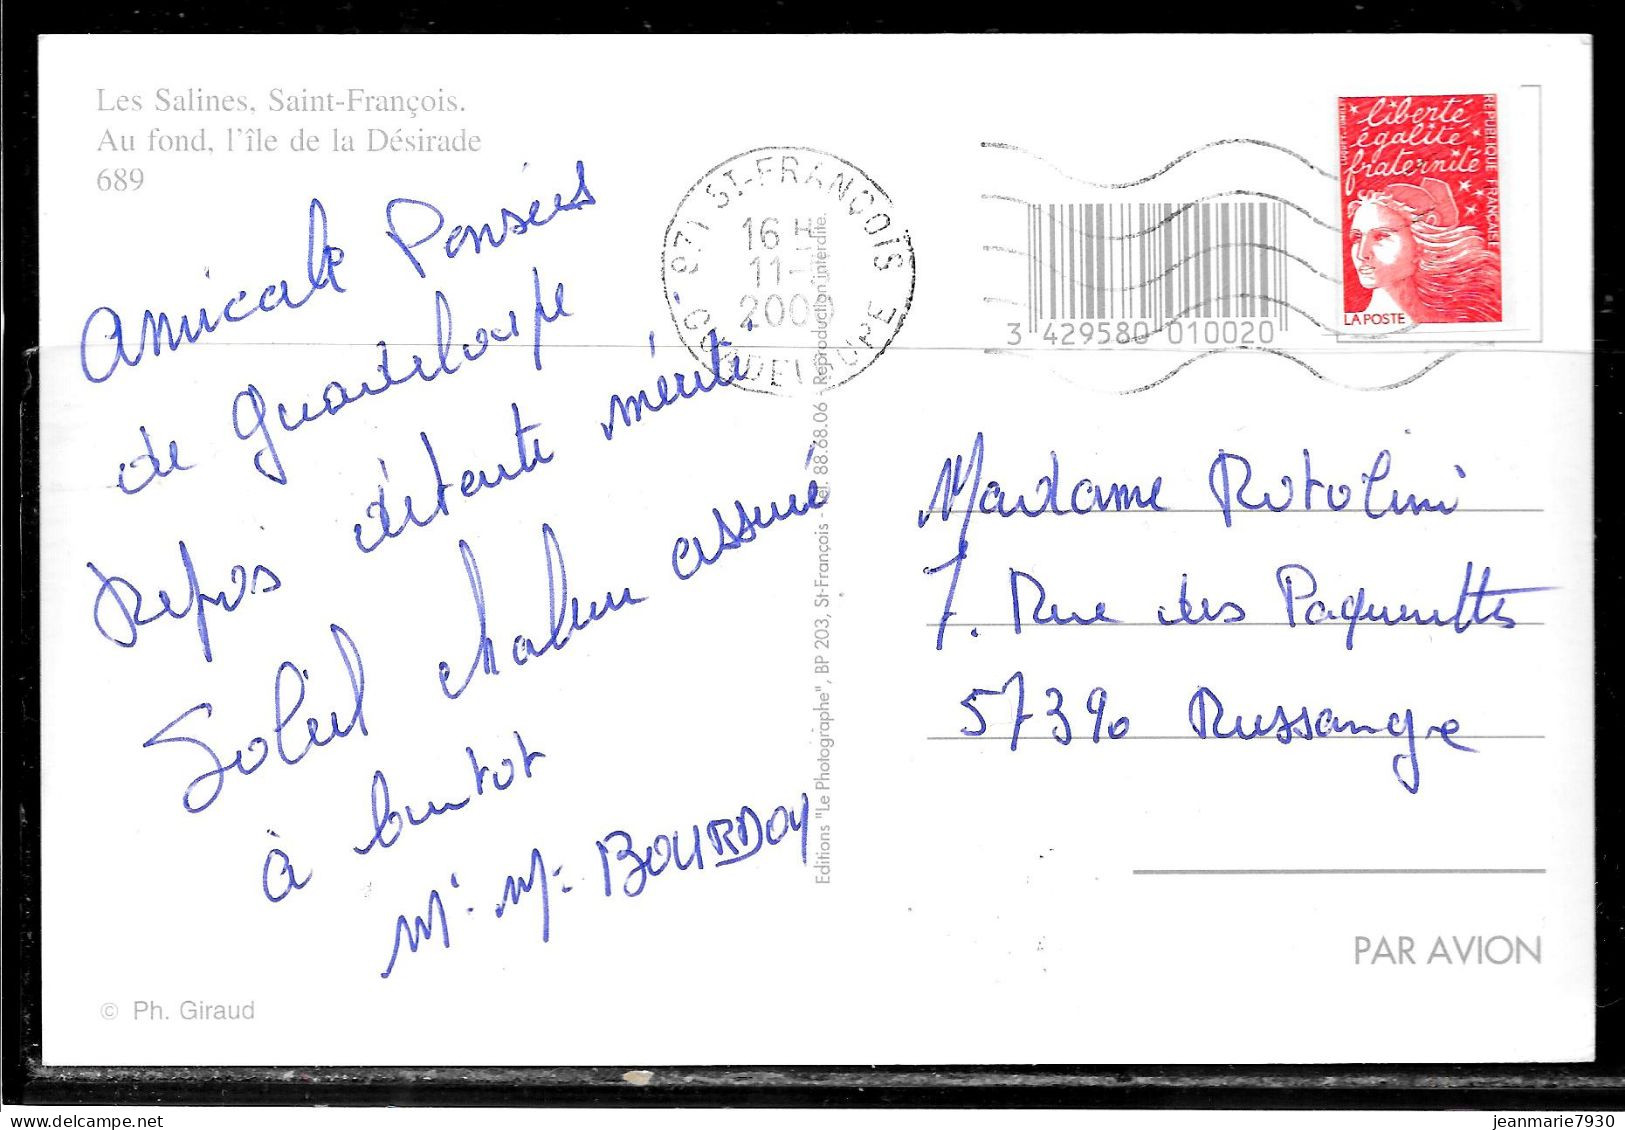 Les Salines, Saint-François.
Au fond, l'île de la Désirade
689
Amicale Pensées
de Guadeloupe
Repos détente mérité
Soleil chaleur assuré
à bientot
Mr. Me BOURDOY
© Ph. Giraud
971 ST-FRANCOIS
16 H
11-
2000
GUADELOUPE
Editions "Le Photographe", BP 203, St-François - Tél. 88.68.06 - Reproduction interdite.
3 429580 010020
liberté
égalité
fraternité
REPUBLIQUE FRANCAISE
LA POSTE
Madame Rotolini
7. Rue des Paquerettes
57390 Russange
PAR AVION
jeanmarie7930